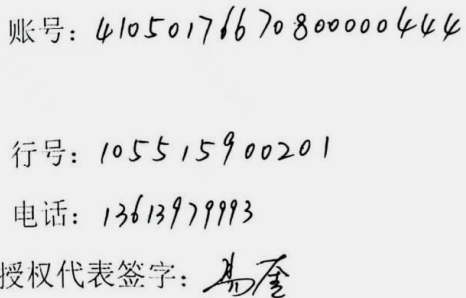 账号：41050176670800000444
行号：105515900201
电话：13613979993
授权代表签字：